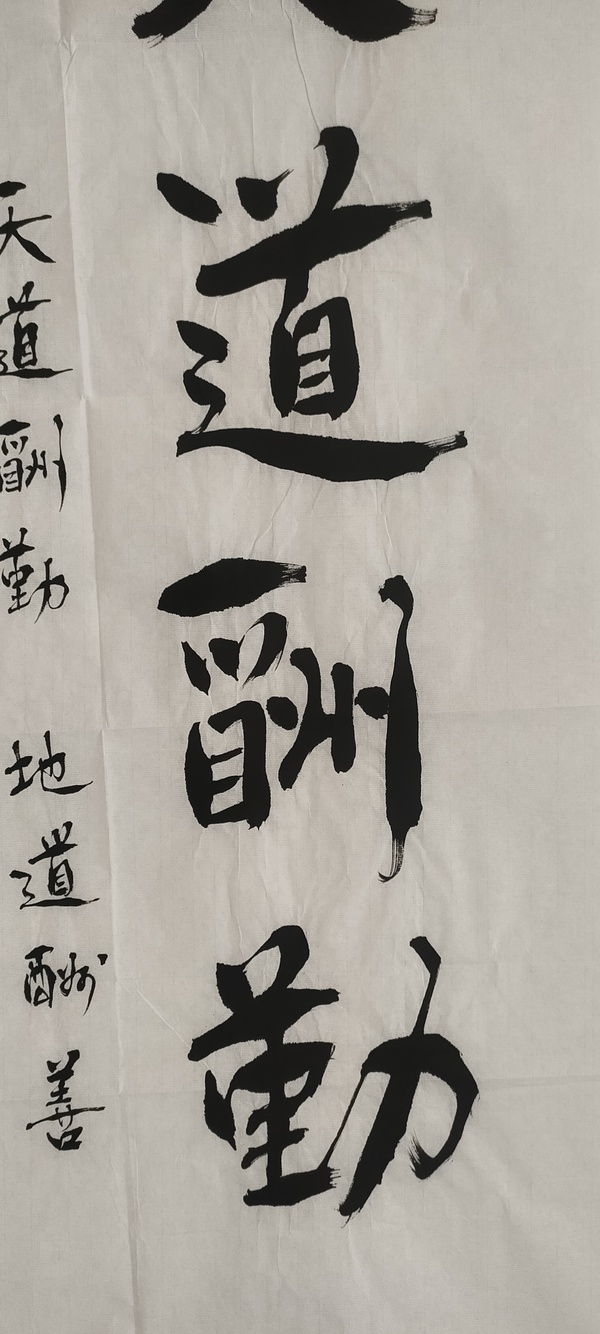 天道酬勤
天道酬勤 地道酬善